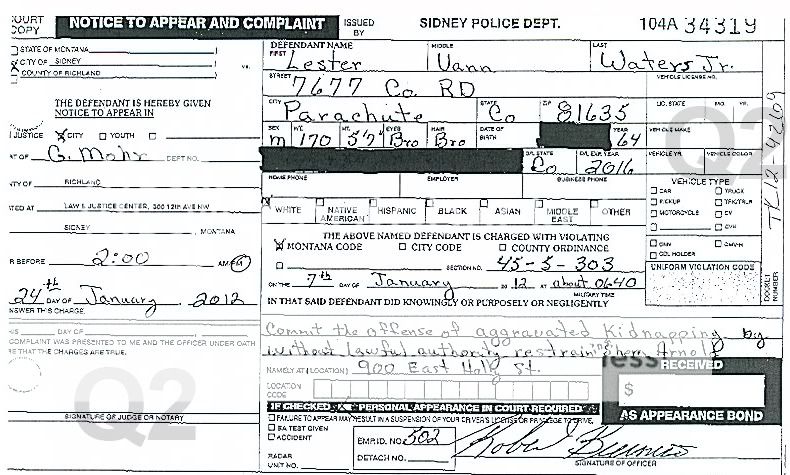 COURT COPY
NOTICE TO APPEAR AND COMPLAINT
ISSUED BY
SIDNEY POLICE DEPT.
104A 34319
STATE OF MONTANA
CITY OF SIDNEY
COUNTY OF RICHLAND
vs.
DEFENDANT NAME
FIRST MIDDLE LAST
Lester Vann Waters Jr.
STREET VEHICLE LICENSE NO.
7677 Co. RD
CITY STATE ZIP LIC. STATE MO. YR.
Parachute Co 81635
THE DEFENDANT IS HEREBY GIVEN
NOTICE TO APPEAR IN
SEX WT. HT. EYES HAIR DATE OF BIRTH YEAR VEHICLE MAKE
m 170 5'7" Bro Bro 64
JUSTICE CITY YOUTH
G. Mohr DEPT NO.
D/L STATE D/L EXP. YEAR VEHICLE YR. VEHICLE COLOR
Co 2016
HOME PHONE EMPLOYER BUSINESS PHONE
RICHLAND
VEHICLE TYPE
CAR TRUCK
PICKUP TRK/TRLR
MOTORCYCLE CV
LAW & JUSTICE CENTER, 300 12th AVE NW
WHITE NATIVE AMERICAN HISPANIC BLACK ASIAN MIDDLE EAST OTHER
SIDNEY, MONTANA
THE ABOVE NAMED DEFENDANT IS CHARGED WITH VIOLATING
MONTANA CODE CITY CODE COUNTY ORDINANCE
CDL HOLDER
R BEFORE 2:00 AM/PM
SECTION NO. 45-5-303
UNIFORM VIOLATION CODE
24th DAY OF January, 2012
ON THE 7th DAY OF January 20 12 at about 0640
MILITARY TIME
NSWER THIS CHARGE.
IN THAT SAID DEFENDANT DID KNOWINGLY OR PURPOSELY OR NEGLIGENTLY
DOCKET NUMBER
TK12-42109
DAY OF
COMPLAINT WAS PRESENTED TO ME AND THE OFFICER UNDER OATH
THAT THE CHARGES ARE TRUE.
Commit the offense of aggravated Kidnapping by
without lawful authority restraining Sherry Arnold
NAMELY AT (LOCATION) 900 East Holly St.
LOCATION CODE
RECEIVED
$
AS APPEARANCE BOND
SIGNATURE OF JUDGE OR NOTARY
IF CHECKED PERSONAL APPEARANCE IN COURT REQUIRED
FAILURE TO APPEAR MAY RESULT IN A SUSPENSION OF YOUR DRIVER'S LICENSE OR PRIVILEGE TO DRIVE.
BA TEST GIVEN
ACCIDENT
EMP. ID NO. 502
RADAR UNIT NO.
DETACH NO.
SIGNATURE OF OFFICER
Q2
Q2